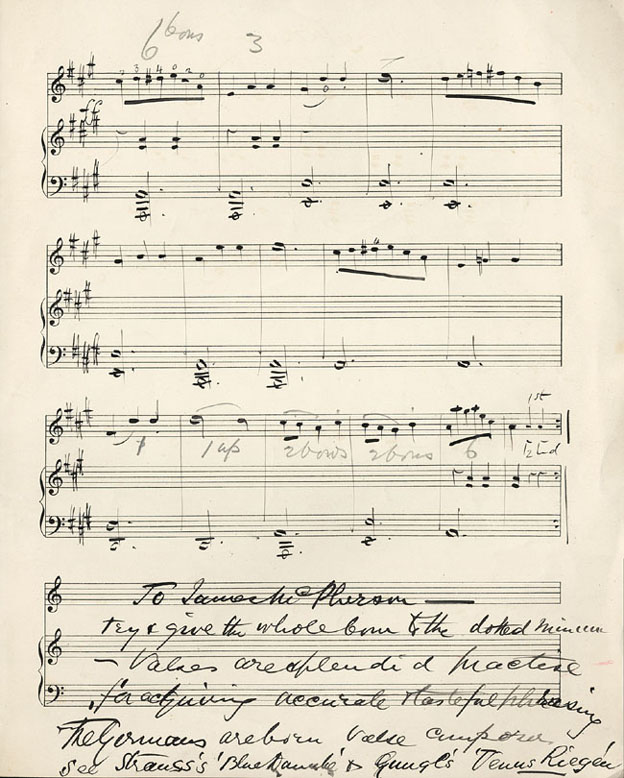 6 bows 3
ff
2 3 4 0 2 0
0
1st
1 1 up 2 bows 2 bows 6 2nd
To James McPherson
try & give the whole bow to the dotted minim
— Valses are splendid practice
for acquiring accurate & tasteful phrasing
The Germans are born Valse composers
See Strauss's 'Blue Danube' & Gungl's 'Venus Riegen